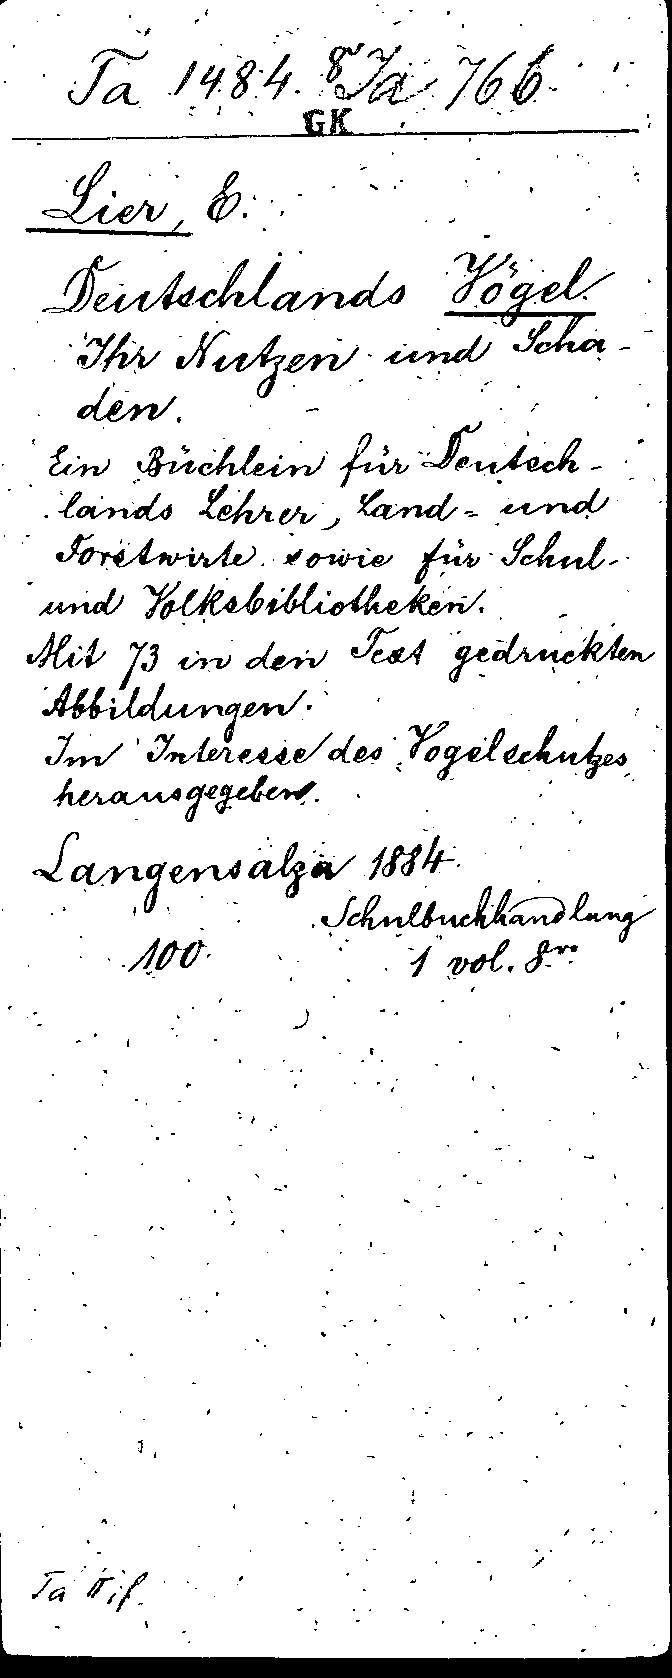 Ta 1484. 8° Ja 766.
GK
Lier, E.
Deutschlands Vögel.
Ihr Nutzen und Scha-
den.
Ein Büchlein für Deutsch-
lands Lehrer, Land- und
Forstwirte sowie für Schul-
und Volksbibliotheken.
Mit 73 in den Text gedruckten
Abbildungen.
Im Interesse des Vogelschutzes
herausgegeben.
Langensalza 1884.
Schulbuchhandlung
100. 1 vol. 8vo
Ta